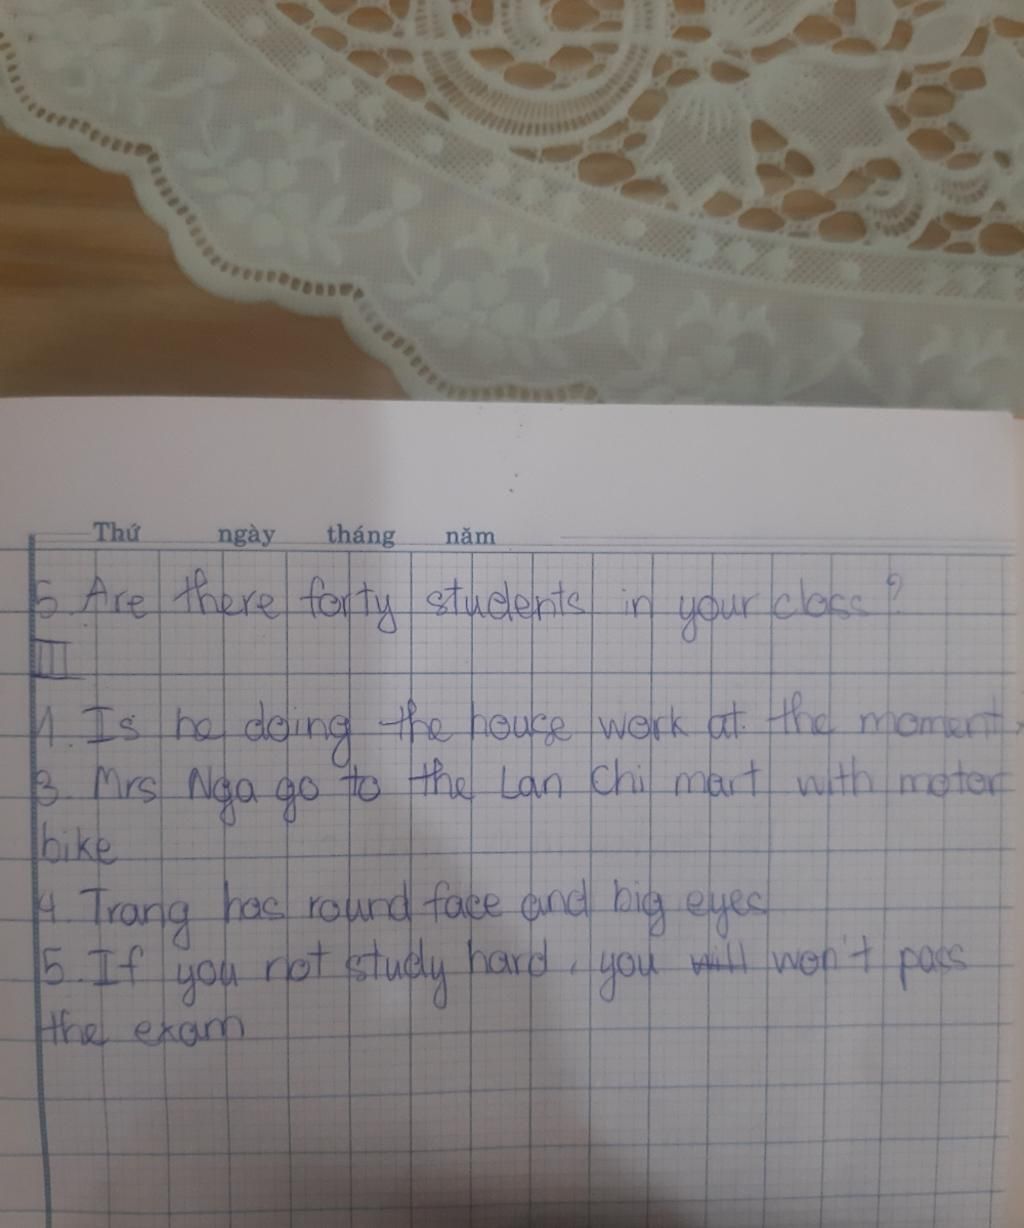 Thứ ngày tháng năm
5. Are there forty students in your class?
III
1. Is he doing the house work at the moment.
3. Mrs Nga go to the Lan Chi mart with motor
bike
4. Trang has round face and big eyes
5. If you not study hard, you will won't pass
the exam